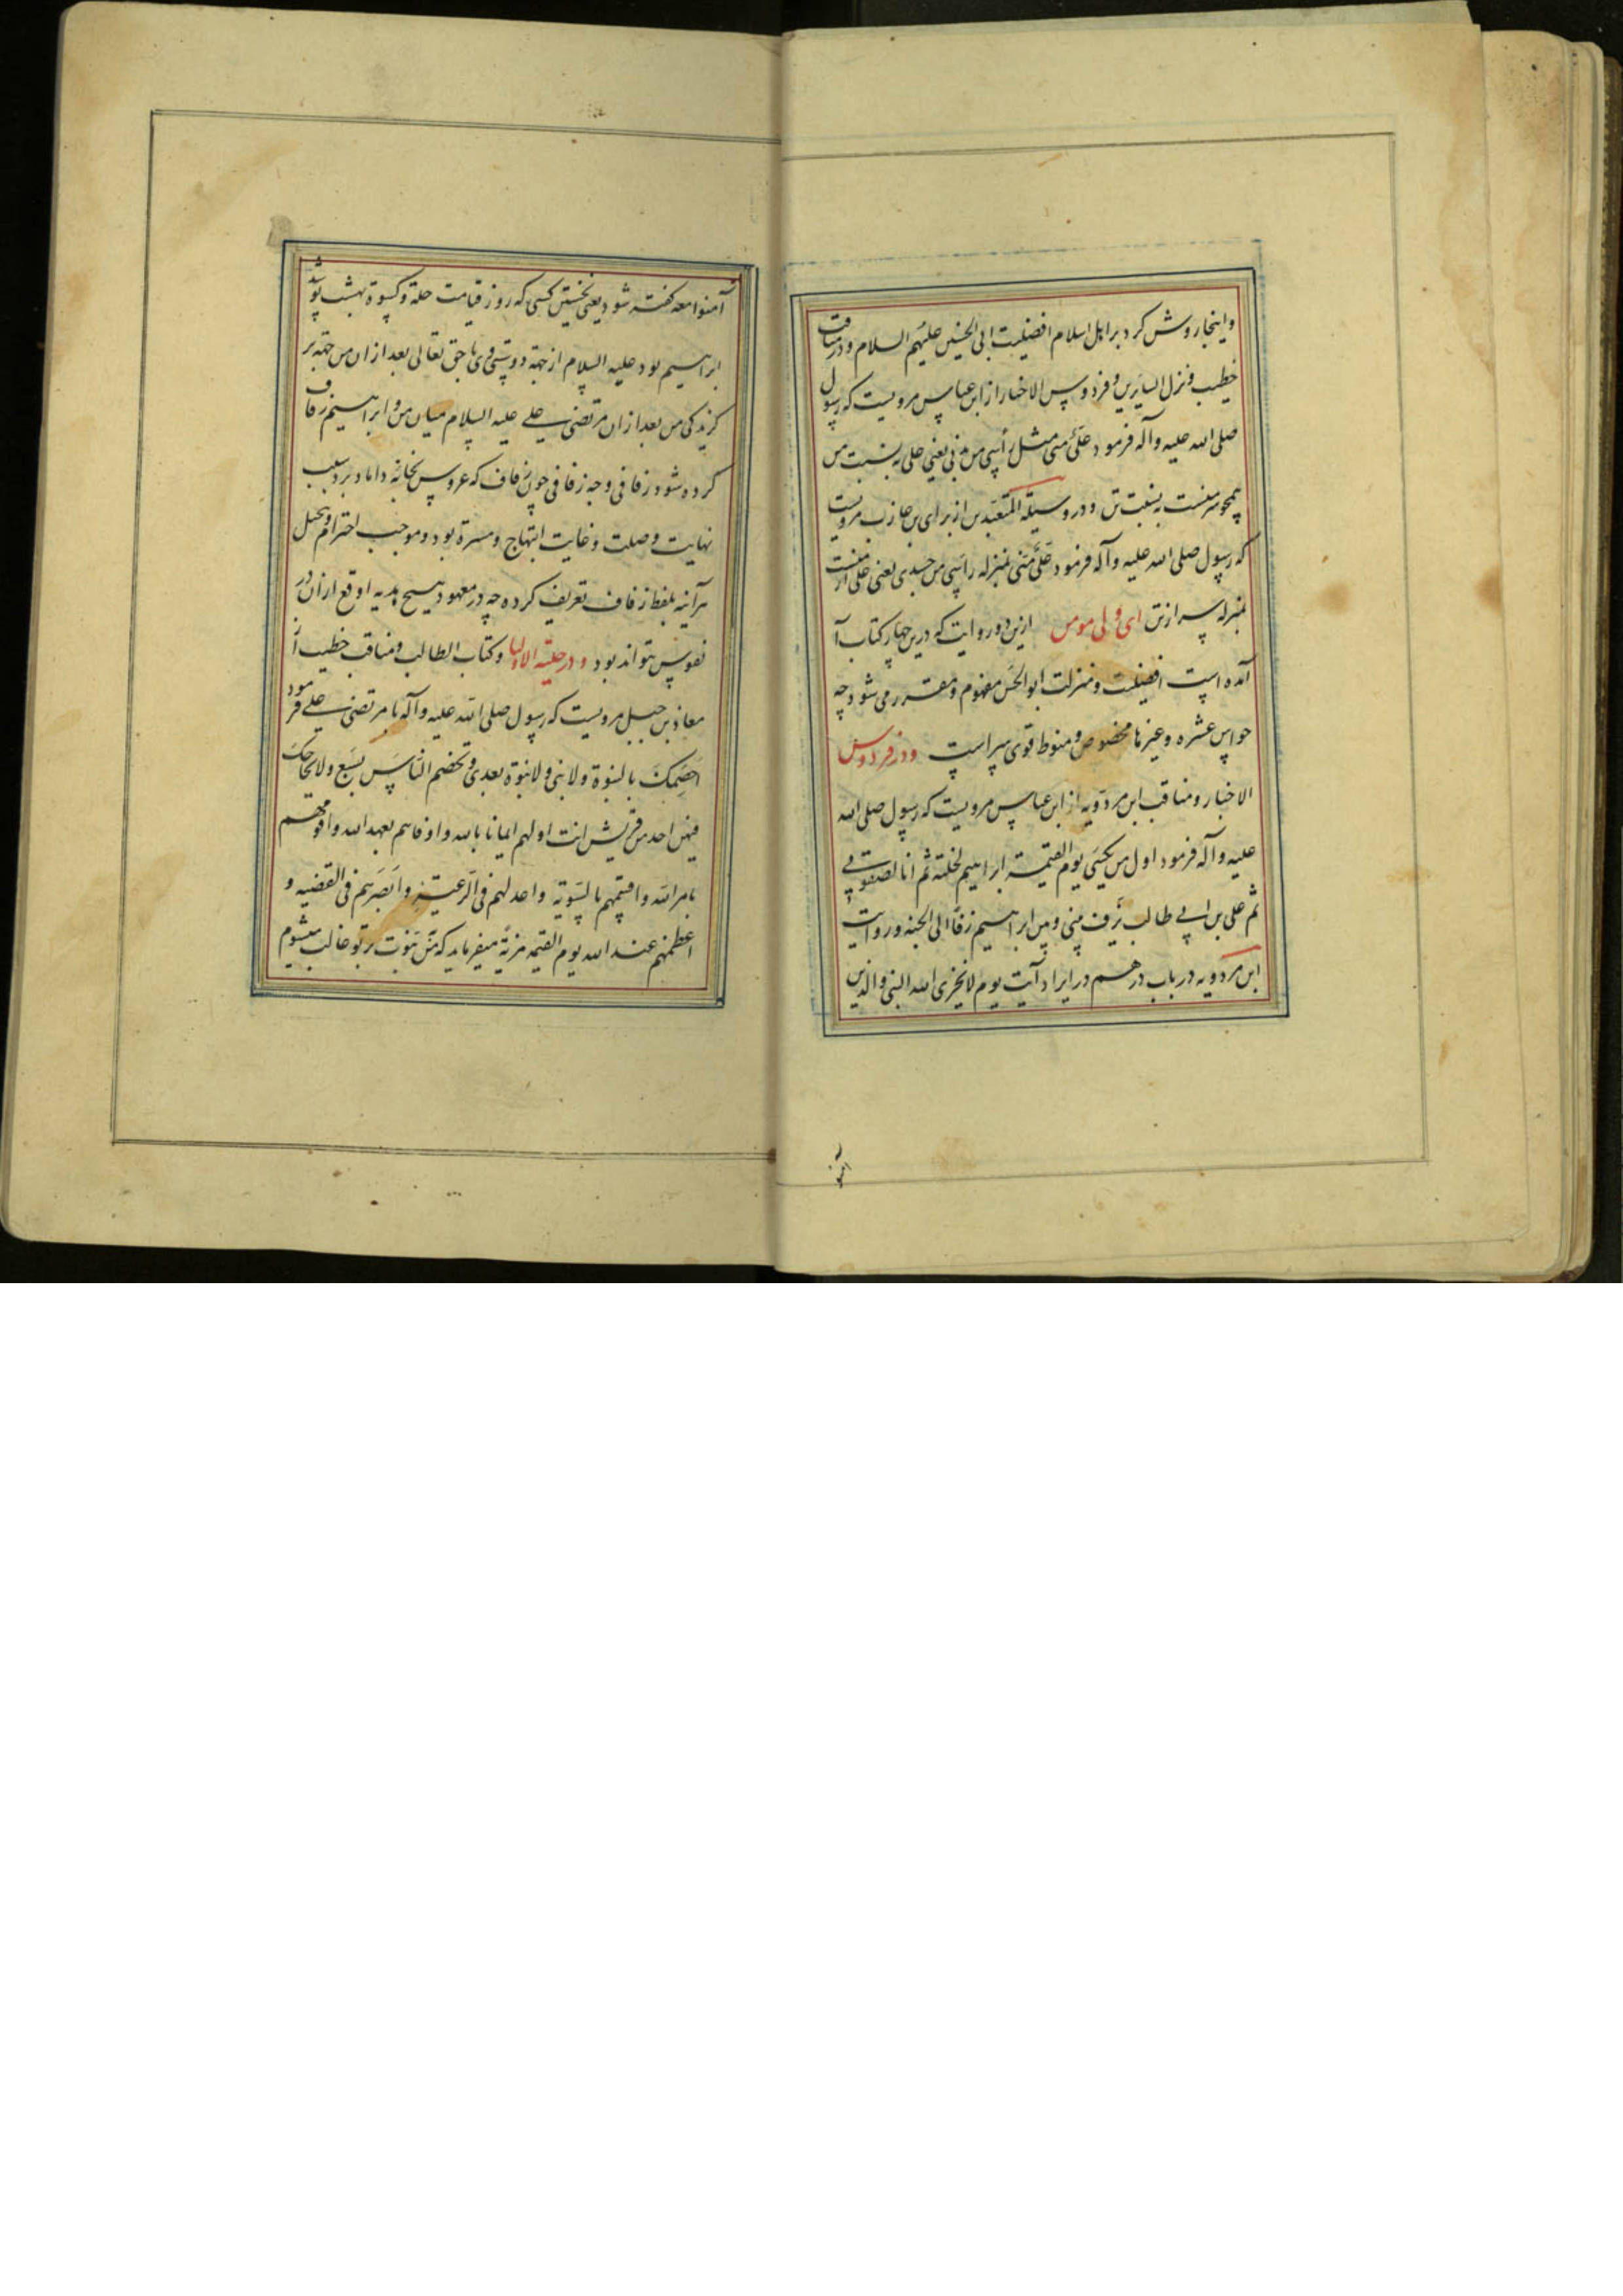 واینجا روشن کرد بر اهل اسلام افضلیت ابی الحسین علیهم السلام و در مناقب
خطیب و نزل السایرین و فردوس الاخبار از ابن عباس مرویست که رسول
صلی الله علیه وآله فرمود علی منی مثل رأسی من بدنی یعنی علی به نسبت من
همچو سر منست به نسبت تن و در وسیلة المتعبدین از برای بن عازب مرویست
که رسول صلی الله علیه وآله فرمود علی منی بمنزله رأسی من جسدی یعنی علی از منست
بمنزله سر از تن ای ولی مومن ازین دو روایت که درین چهار کتاب آ
آمده است افضلیت و منزلت ابوالحسن مفهوم و مقرر می شود چه
حواس عشره و غیرها مخصوص و منوط قوی سر است و در فردوس
الاخبار و مناقب ابن مردویه از ابن عباس مرویست که رسول صلی الله
علیه وآله فرمود اول من یکسی یوم القیمة ابراهیم لخلته ثم انا لصفوتی
ثم علی بن ابی طالب یزف منی و من ابراهیم زفا الی الجنه و روایت
ابن مردویه در باب درهم در ایراد آیت یوم لا یخزی الله النبی والذین
آمنوا معه گفته شود یعنی نخستین کسی که روز قیامت حلة و کسوة بهشت پوشد
ابراهیم بود علیه السلام از جهة دوستی وی با حق تعالی بعد ازان من جهة بر
گزیدگی من بعد ازان مرتضی علی علیه السلام میان من و ابراهیم زفاف
کرده شود زفافی و چه زفافی چون زفاف که عروس بخانه داماد برد بسبب
نهایت وصلت و غایت ابتهاج و مسرة بود و موجب احترام و تبجیل
هرآینه بلفظ زفاف تعریف کرده چه در معهود هیچ هدیه اوقع ازان در
نفوس نتواند بود و در حلیة الاولیا و کتاب الطالب و مناقب خطیب از
معاذ بن جبل مرویست که رسول صلی الله علیه وآله با مرتضی علی فرمود
اخصمک بالنبوة ولا نبی ولا نبوة بعدی وتخصم الناس بسبع ولا یحاجک
فیهن احد من قریش انت اولهم ایمانا بالله واوفاهم بعهد الله واقومهم
بامر الله واقسمهم بالسویة واعدلهم فی الرعیة وابصرهم فی القضیه و
اعظمهم عند الله یوم القیمه مزیة میفرماید که من بنبوت بر تو غالب میشوم